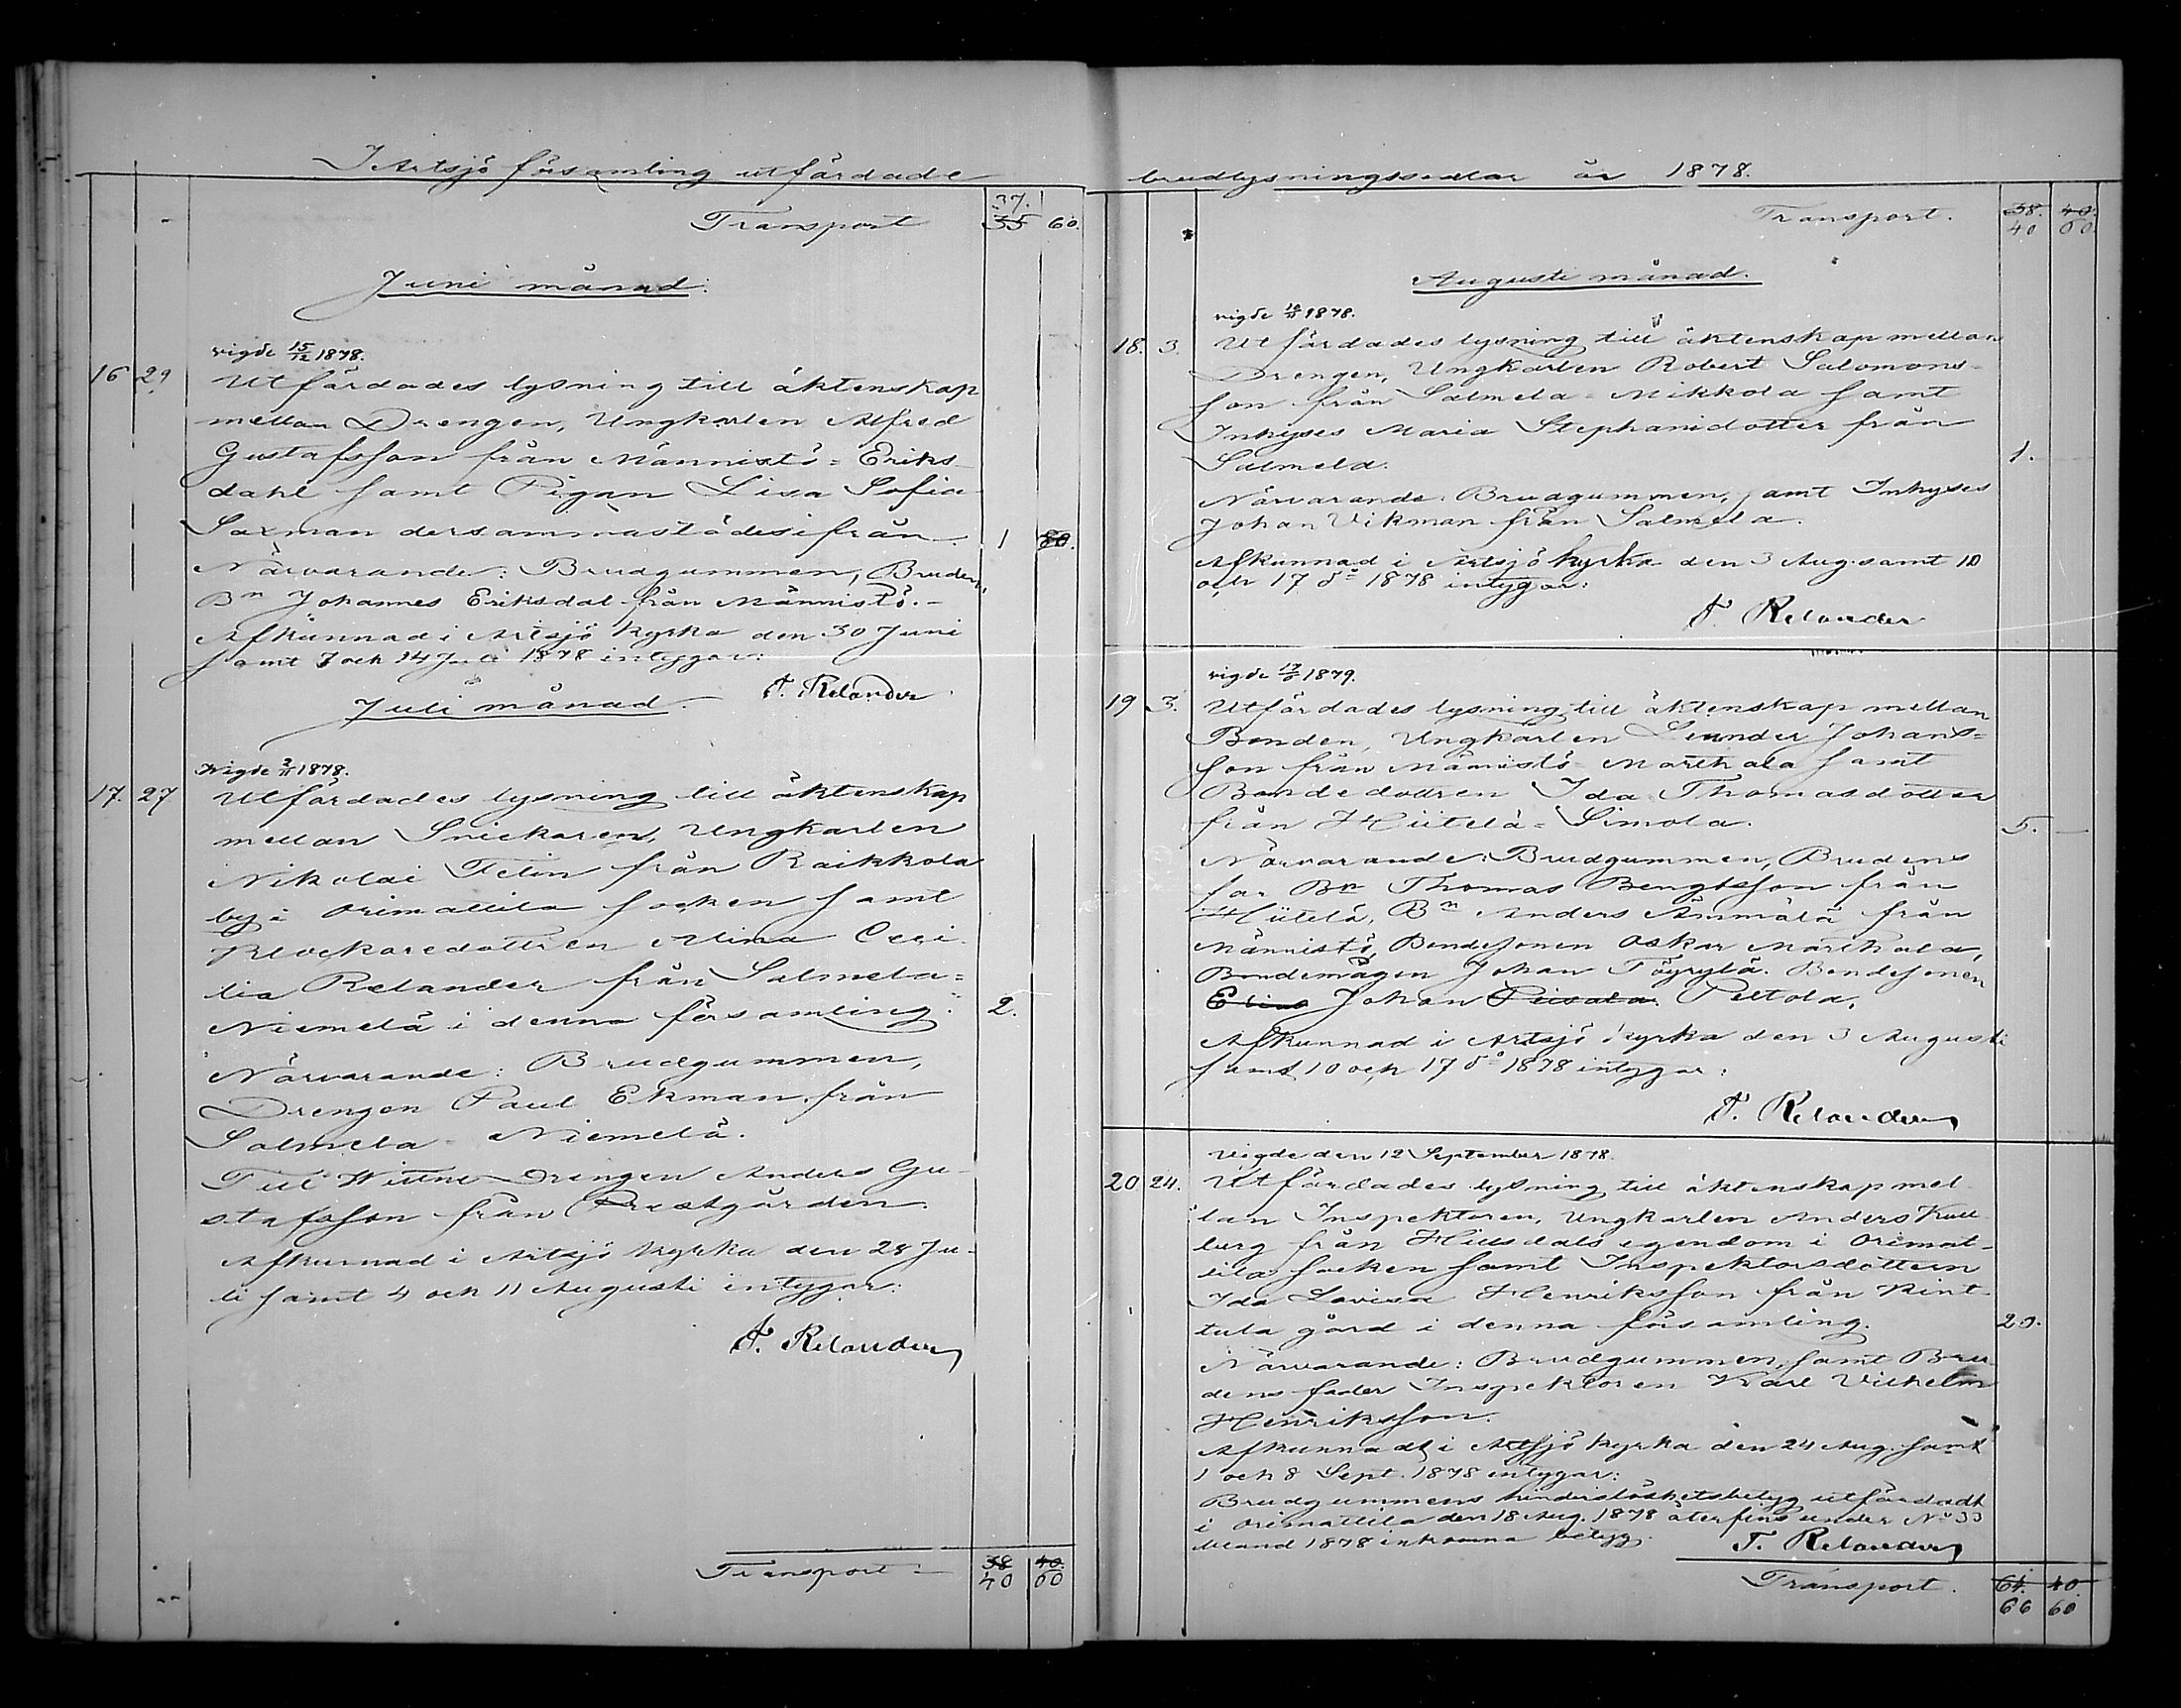 I Artsjö församling utfärdade
Transport 37. 35 60.
Juni månad.
vigde 15/12 1878.
16 29 Utfärdades lysning till äktenskap
mellan Drengen, Ungkarlen Alfred
Gustafsson från Männistö = Eriks-
dahl samt Pigan Lisa Sofia
Saxman dersammastädesifrån 1 80.
Närvarande: Brudgummen, Brudens
Bn Johannes Eriksdal från Männistö.-
Afkunnad i Artsjö kyrka den 30 Juni
samt 7 och 14 Juli 1878 intygar:
F. Relander
Juli månad.
Vigde 3/11 1878.
17. 27 Utfärdades lysning till äktenskap
mellan Snickaren, Ungkarlen
Nikolai Felin från Raikkola
by i Orimattila socken samt
Klockaredottren Alina Ceci-
lia Relander från Salmela =
Niemelä i denna församling. 2.
Närvarande: Brudgummen,
Drengen Paul Ekman från
Salmela - Niemelä.
Till Wittne Drengen Anders Gu-
stafsson från Prestgården.
Afkunnad i Artsjö kyrka den 28 Ju-
li samt 4 och 11 Augusti intygar:
F. Relander
Transport 38 40. 40 60
brudlysningssedlar år 1878.
Transport. 38. 40. 40 60.
Augusti månad.
vigde 1878.
18. 3. Utfärdades lysning till äktenskap mellan
Drengen, Ungkarlen Robert Salomons-
son från Salmela - Mikkola samt
Inhyses Maria Stephanidotter från
Salmela. 1.
Närvarande: Brudgummen, samt Inhyses
Johan Vikman från Salmela.
Afkunnad i Artsjö kyrka den 3 Aug. samt 10
och 17 do 1878 intygar:
F. Relander
vigde 1879.
19 3. Utfärdades lysning till äktenskap mellan
Bonden, Ungkarlen Leander Johans=
son från Männistö - Marthala samt
Bondedottren Ida Thomasdotter
från Hiitelä = Simola. 5. —
Närvarande: Brudgummen, Brudens
far Bn Thomas Bengtsson från
Hiitelä, Bn Anders Ämmälä från
Männistö, Bondesonen Oskar Marthala,
Bondemågen Johan Töyrylä. Bondesonen
Elias Johan Peltola.
Afkunnad i Artsjö kyrka den 3 Augusti
samt 10 och 17 do 1878 intygar:
F. Relander
Vigde den 12 September 1878.
20 24. Utfärdades lysning till äktenskap mel-
lan Inspektoren, Ungkarlen Anders Kull-
berg från egendom i Orimat-
tila socken samt Inspektorsdottern
Ida Lovisa Henriksson från Kint-
tula gård i denna församling. 20.
Närvarande: Brudgummen, samt Bru-
dens fader Inspektoren Karl Vilhelm
Henriksson.
Afkunnadt i Artsjö kyrka den 24 Aug. samt
1 och 8 Sept. 1878 intygar:
Brudgummens hinderslöshetsbetyg utfärdadt
i Orimattila den 18 Aug. 1878 återfins under No 33
bland 1878 inkomna betyg. F. Relander
Transport. 64. 40. 66 60